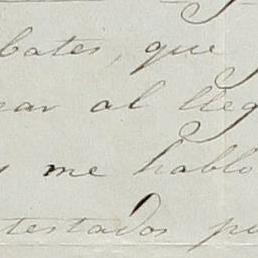 bates, que
ar al lleg
me hablo
testados po